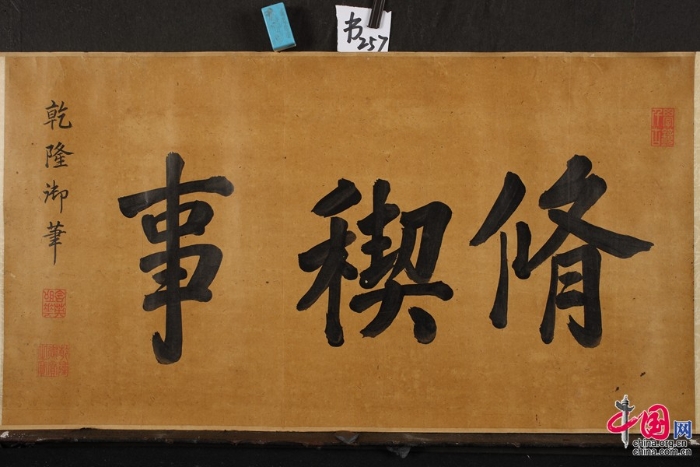 书257
脩稧事
乾隆御筆
中国网
china.org.cn
china.com.cn